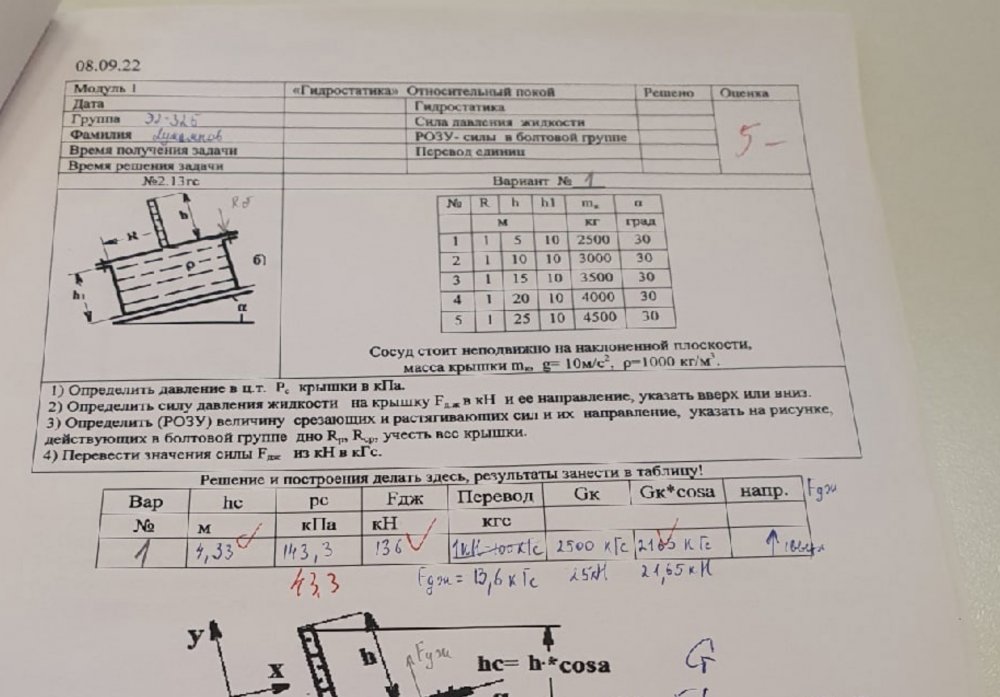 08.09.22
Модуль 1 «Гидростатика» Относительный покой Решено Оценка
Дата Гидростатика
Группа Э2-32Б Сила давления жидкости 5-
Фамилия РОЗУ- силы в болтовой группе
Время получения задачи Перевод единиц
Время решения задачи
№2.13гс Вариант № 1
№ R h h1 mк α
м кг град
1 1 5 10 2500 30
2 1 10 10 3000 30
3 1 15 10 3500 30
4 1 20 10 4000 30
5 1 25 10 4500 30
R h Rб
ρ б)
h1 α
Сосуд стоит неподвижно на наклоненной плоскости,
масса крышки mк, g= 10м/с², ρ=1000 кг/м³.
1) Определить давление в ц.т. Pс крышки в кПа.
2) Определить силу давления жидкости на крышку Fдж в кН и ее направление, указать вверх или вниз.
3) Определить (РОЗУ) величину срезающих и растягивающих сил и их направление, указать на рисунке,
действующих в болтовой группе дно Rр, Rср, учесть вес крышки.
4) Перевести значения силы Fдж из кН в кГс.
Решение и построения делать здесь, результаты занести в таблицу!
Вар hc pc Fдж Перевод Gк Gк*cosa напр. Fдж
№ м кПа кН кгс
1 4,33 143,3 136 1кН=100кГс 2500 кГс 2165 кГс ↑ вверх
43,3 Fдж = 13,6 кГс 25кН 21,65 кН
y x h Fдж hc= h·*cosa G